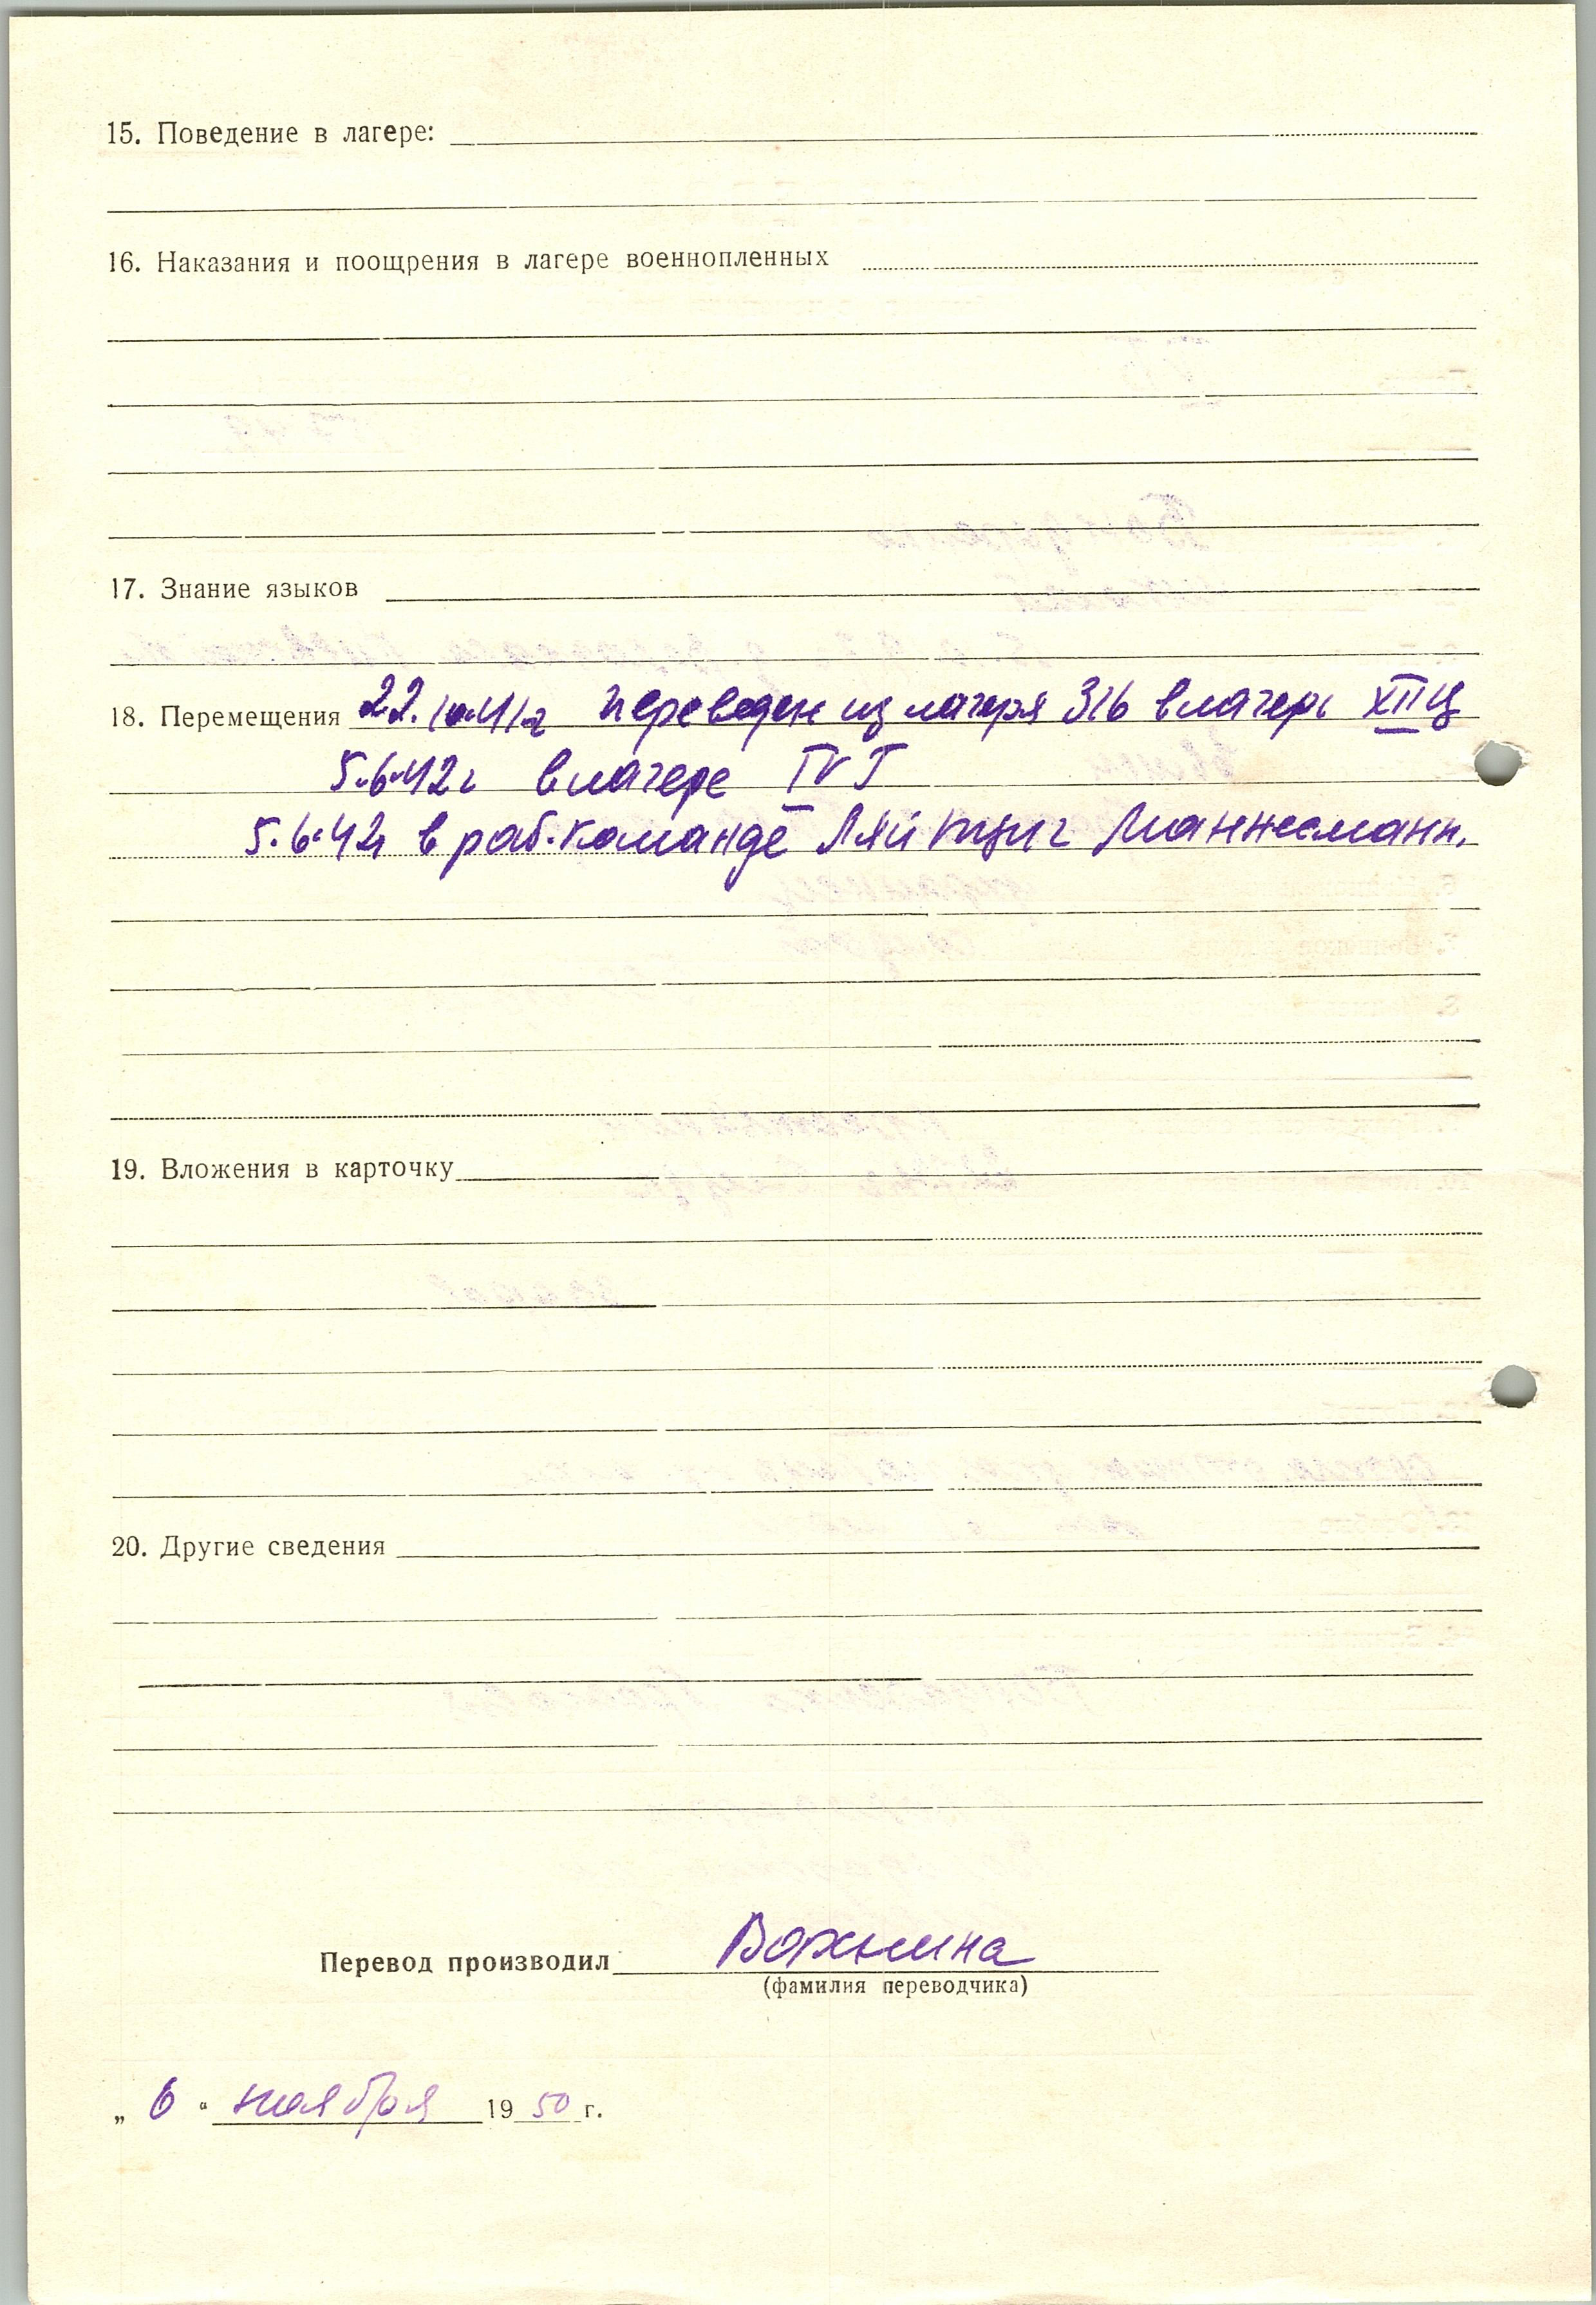 15. Поведение в лагере:
16. Наказания и поощрения в лагере военнопленных
17. Знание языков
18. Перемещения 22.10.41г переведен из лагеря 316 в лагерь XII Ц
5.6.42г в лагере IV Г
5.6.42г в раб. команде Ляйпциг Маннесманн.
19. Вложения в карточку
20. Другие сведения
Перевод производил
(фамилия переводчика)
„ 6 “ ноября 1950 г.